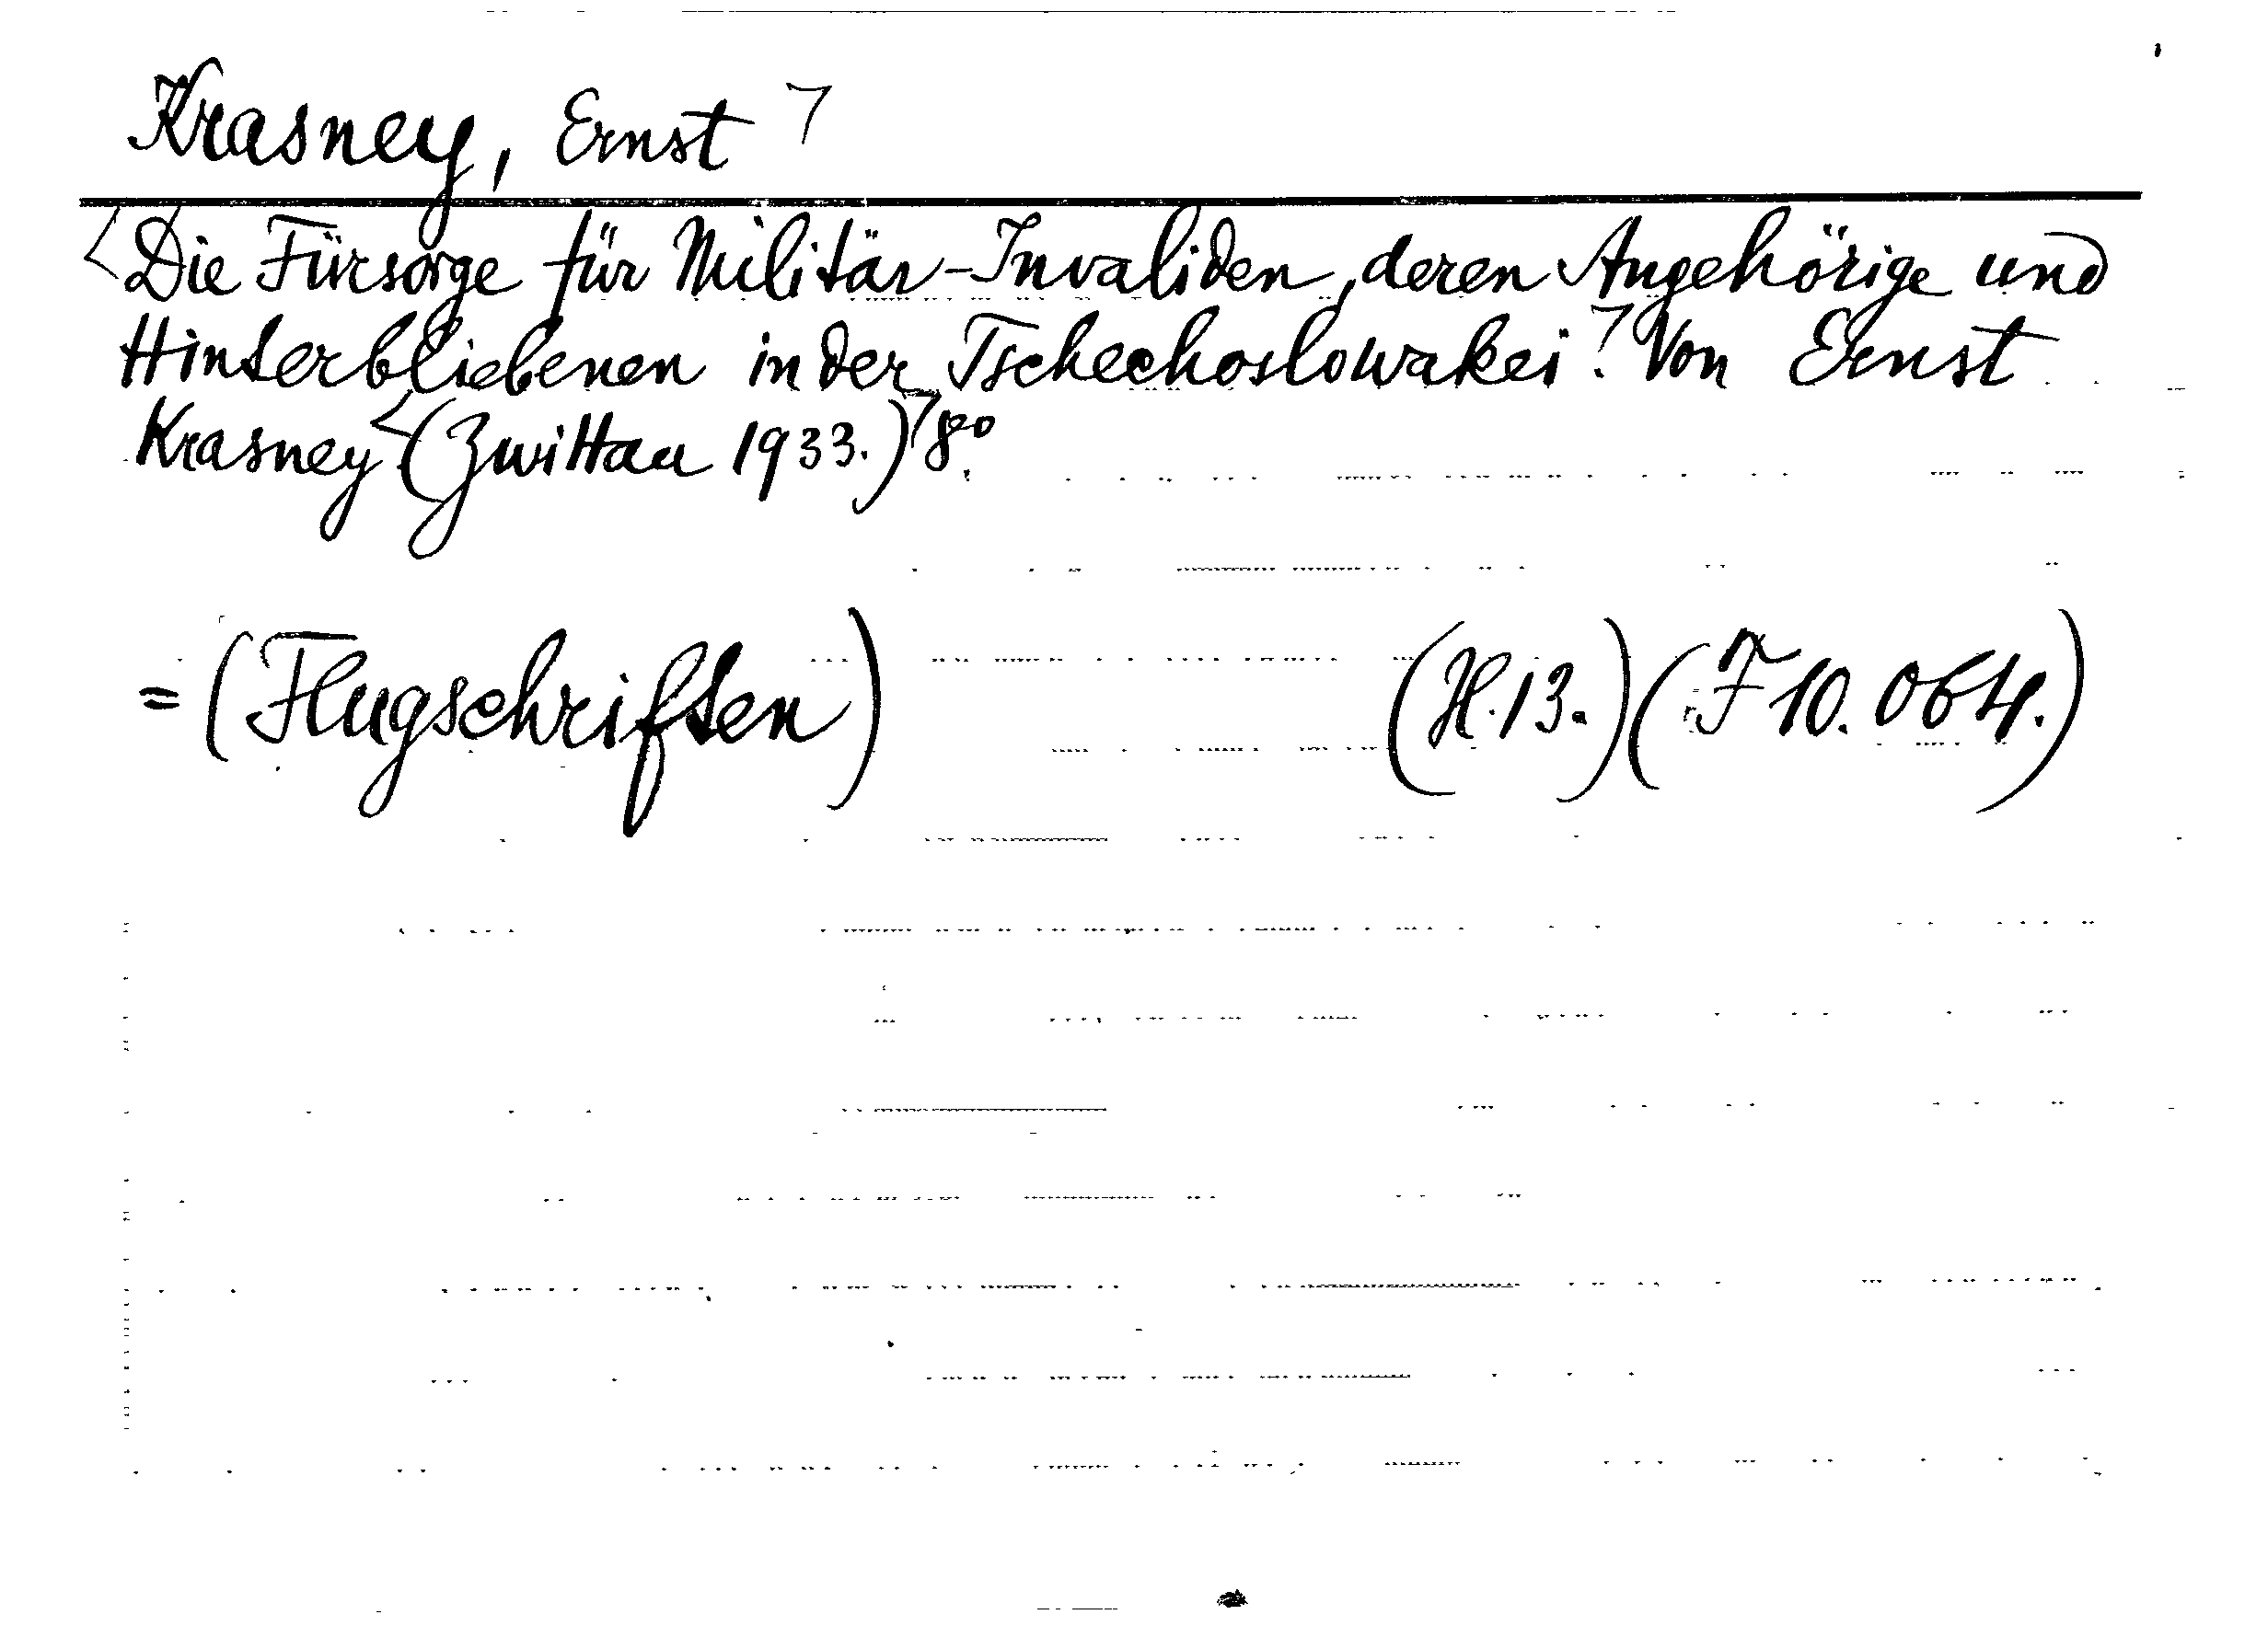 Krasney, Ernst
Die Fürsorge für Militär-Invaliden, deren Angehörige und
Hinterbliebenen in der Tschechoslowakei. Von Ernst
Krasney. (Zwittau 1933.) 8°.
= (Flugschriften) (H. 13.) (F 10.064.)